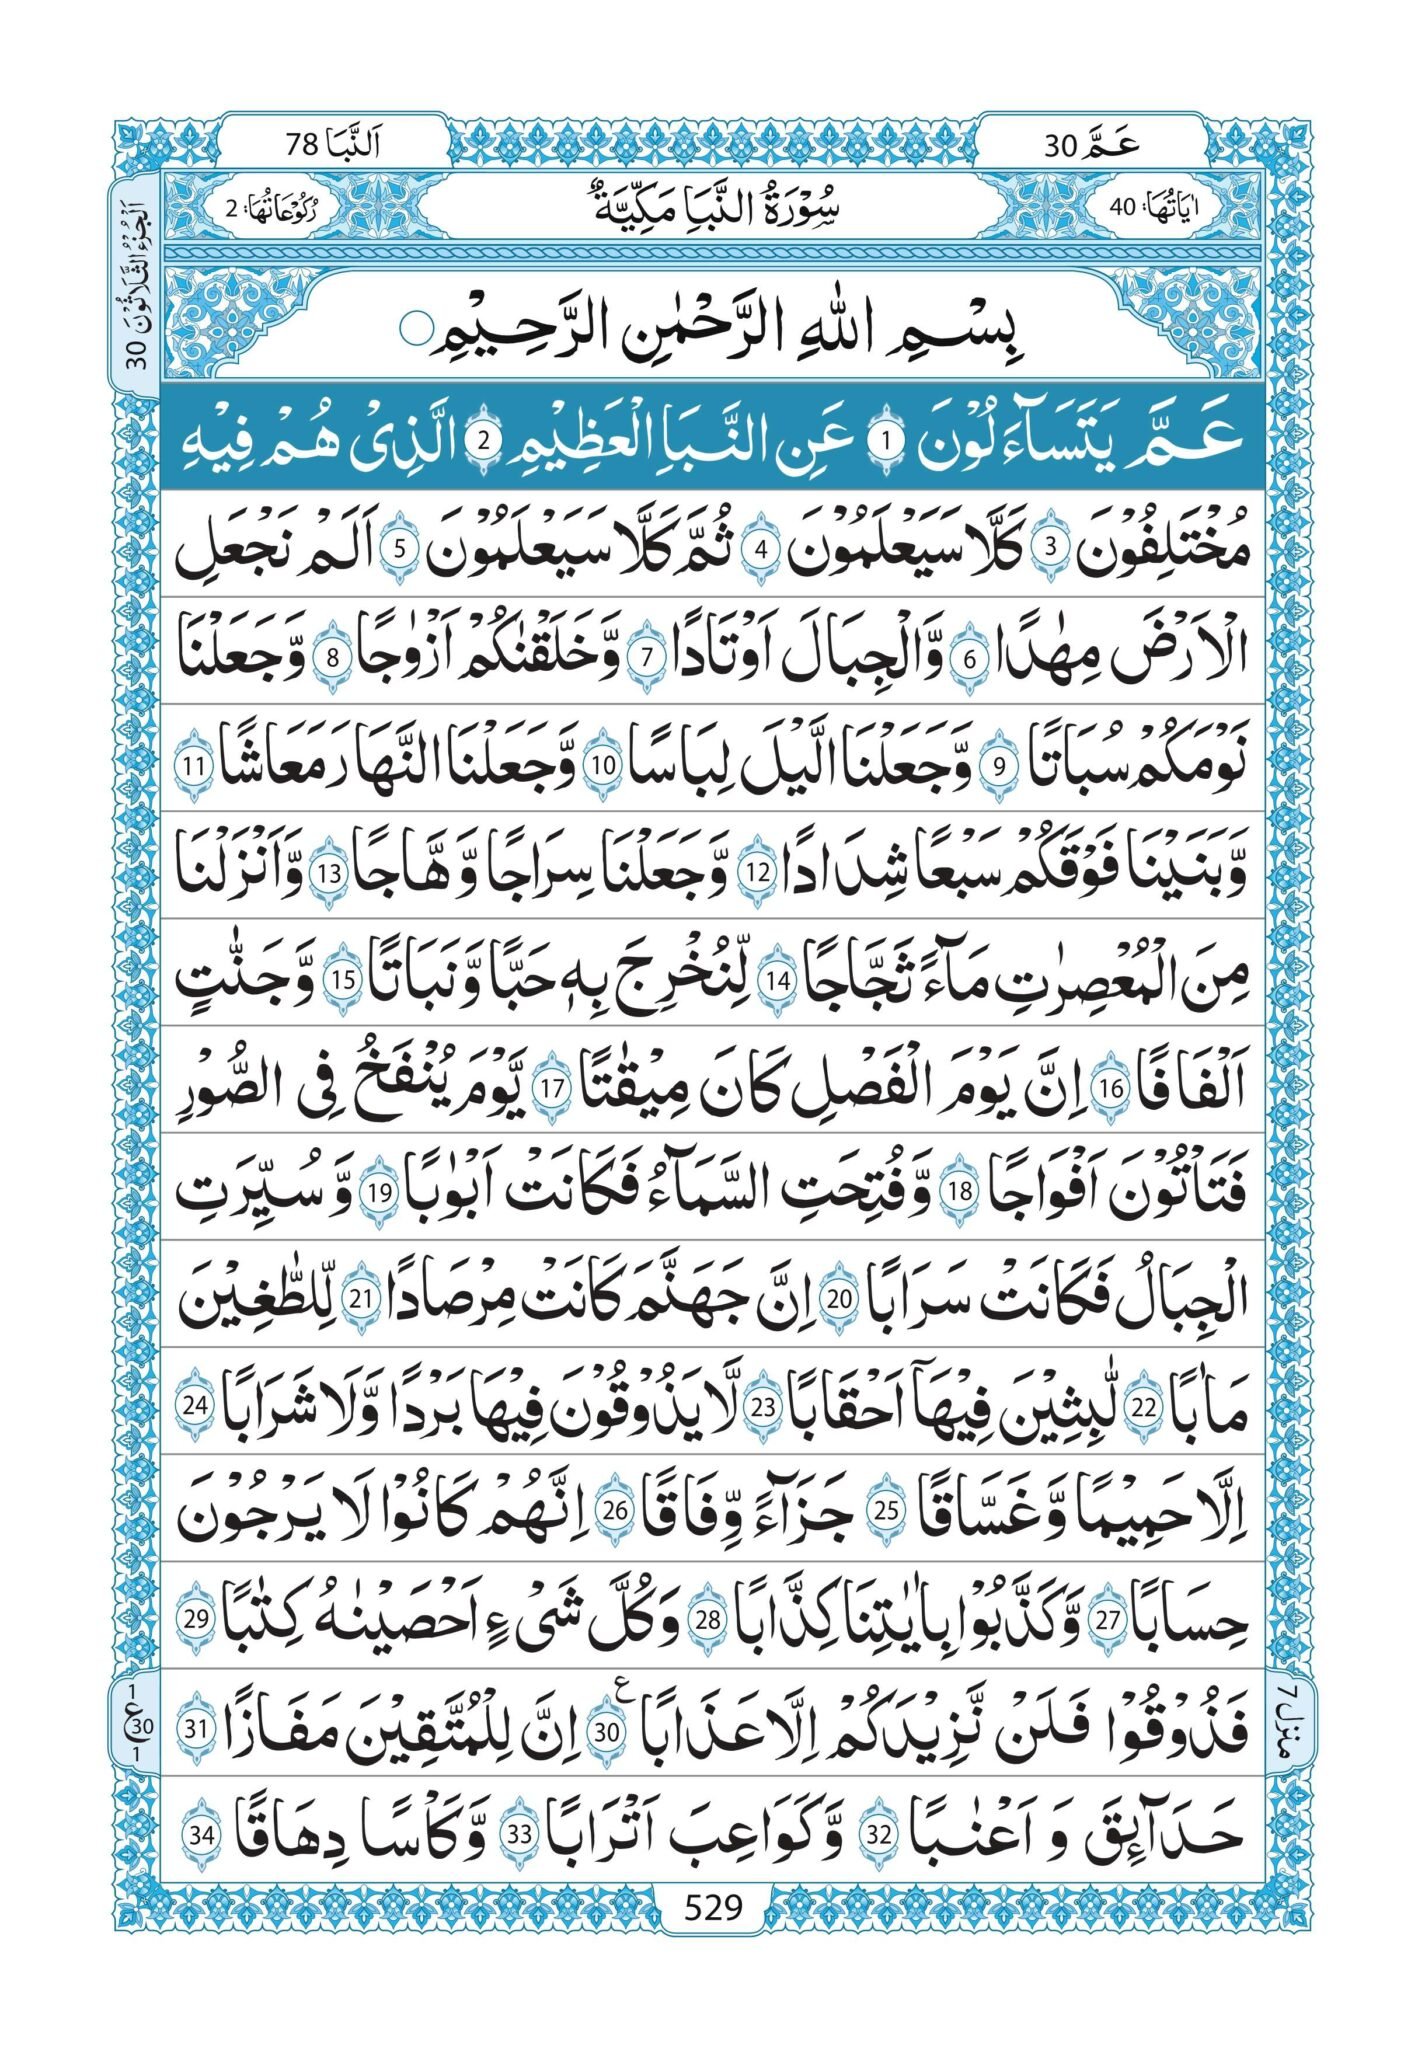 عَمَّ 30
اَلنَّبَا 78
اٰيَاتُهَا: 40
سُوْرَةُ النَّبَاِ مَكِّيَّةٌ
رُكُوْعَاتُهَا: 2
اَلْجُزْءُ الثَّلَاثُوْنَ 30
بِسْمِ اللهِ الرَّحْمٰنِ الرَّحِيْمِ
عَمَّ يَتَسَآءَلُوْنَ 1 عَنِ النَّبَاِ الْعَظِيْمِ 2 الَّذِيْ هُمْ فِيْهِ
مُخْتَلِفُوْنَ 3 كَلَّا سَيَعْلَمُوْنَ 4 ثُمَّ كَلَّا سَيَعْلَمُوْنَ 5 اَلَمْ نَجْعَلِ
الْاَرْضَ مِهٰدًا 6 وَّالْجِبَالَ اَوْتَادًا 7 وَّخَلَقْنٰكُمْ اَزْوٰجًا 8 وَّجَعَلْنَا
نَوْمَكُمْ سُبَاتًا 9 وَّجَعَلْنَا الَّيْلَ لِبَاسًا 10 وَّجَعَلْنَا النَّهَارَ مَعَاشًا 11
وَّبَنَيْنَا فَوْقَكُمْ سَبْعًا شِدَادًا 12 وَّجَعَلْنَا سِرَاجًا وَّهَّاجًا 13 وَّاَنْزَلْنَا
مِنَ الْمُعْصِرٰتِ مَآءً ثَجَّاجًا 14 لِّنُخْرِجَ بِهٖ حَبًّا وَّنَبَاتًا 15 وَّجَنّٰتٍ
اَلْفَافًا 16 اِنَّ يَوْمَ الْفَصْلِ كَانَ مِيْقٰتًا 17 يَّوْمَ يُنْفَخُ فِى الصُّوْرِ
فَتَاْتُوْنَ اَفْوَاجًا 18 وَّفُتِحَتِ السَّمَآءُ فَكَانَتْ اَبْوٰبًا 19 وَّسُيِّرَتِ
الْجِبَالُ فَكَانَتْ سَرَابًا 20 اِنَّ جَهَنَّمَ كَانَتْ مِرْصَادًا 21 لِّلطّٰغِيْنَ
مَاٰبًا 22 لّٰبِثِيْنَ فِيْهَآ اَحْقَابًا 23 لَّا يَذُوْقُوْنَ فِيْهَا بَرْدًا وَّلَا شَرَابًا 24
اِلَّا حَمِيْمًا وَّغَسَّاقًا 25 جَزَآءً وِّفَاقًا 26 اِنَّهُمْ كَانُوْا لَا يَرْجُوْنَ
حِسَابًا 27 وَّكَذَّبُوْا بِاٰيٰتِنَا كِذَّابًا 28 وَكُلَّ شَىْءٍ اَحْصَيْنٰهُ كِتٰبًا 29
فَذُوْقُوْا فَلَنْ نَّزِيْدَكُمْ اِلَّا عَذَابًا 30 ع اِنَّ لِلْمُتَّقِيْنَ مَفَازًا 31
منزل 7
1 ع 30 1
حَدَآئِقَ وَ اَعْنٰبًا 32 وَّكَوَاعِبَ اَتْرَابًا 33 وَّكَاْسًا دِهَاقًا 34
529